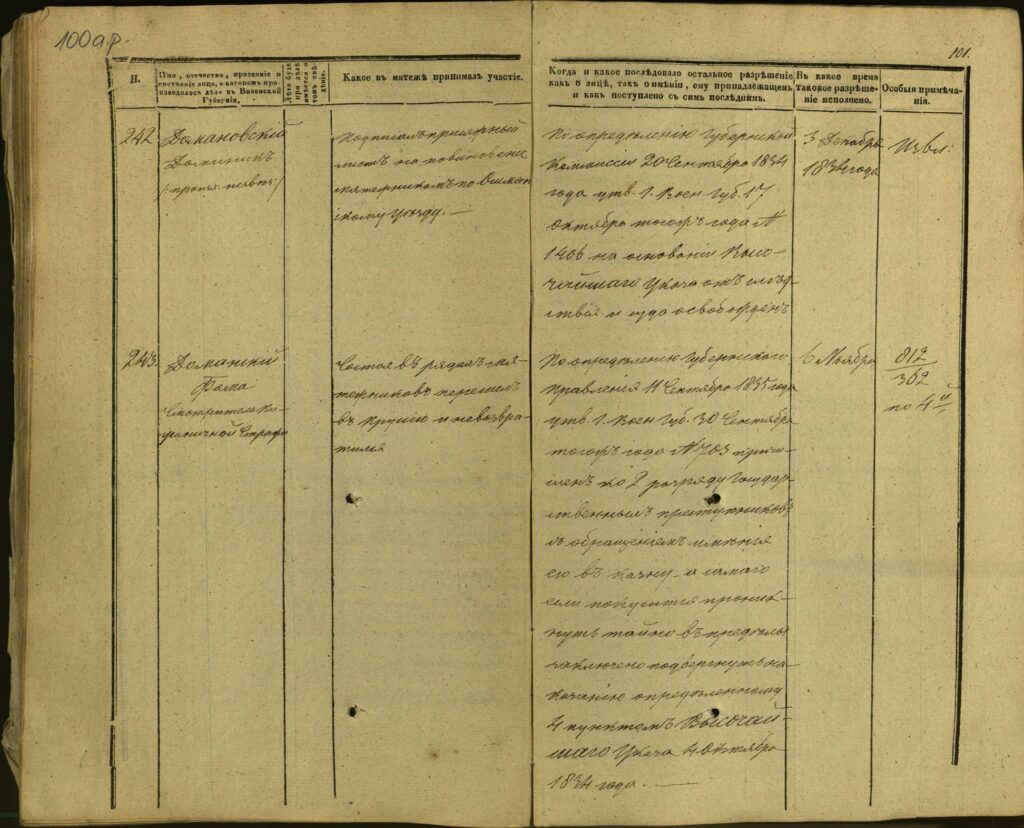 100 ар.
101.
Н.
Имя, отечество, прозваніе и
состояніе лица, о которомъ про-
изводилось дѣло въ Виленской
Губерніи.
Какое въ мятежѣ принималъ участіе.
Когда и какое послѣдовало остальное разрѣшеніе
какъ о лицѣ, такъ о имѣніи, ему принадлежащемъ
и какъ поступлено съ симъ послѣднимъ.
Въ какое время
таковое разрѣше-
ніе исполнено.
Особыя примѣча-
нія.
242
Домановскій
Доминикъ
Подписалъ присяжный
листъ на повиновеніе
мятежникамъ по Ошмян-
скому уѣзду. —
По опредѣленію Губернской
Коммисіи 20 Сентября 1834
года утв. Г. Воен. Губ. 17
Октября тогожъ года №
1406 на основаніи Высо-
чайшаго Указа отъ слѣд-
ствія и суда освобожденъ
3 Декабря
1834 года
Извл:
243.
Доманскій
Фома
Смотритель По-
граничной Стражи
Состоя въ рядахъ мя-
тежниковъ перешелъ
въ Прусію и невозвра-
тился
По опредѣленію Губернскаго
Правленія 11 Сентября 1835 года
утв. Г. Воен. Губ. 30 Сентября
тогожъ года № 783 причи-
сленъ ко 2 разряду Государ-
ственныхъ преступниковъ
съ обращеніемъ имѣнія
его въ казну, а самаго
если покусится проник-
нуть тайно въ предѣлы
заключено подвергнуть на-
казанію опредѣленному
4 пунктомъ Высочай-
шаго Указа 4 Октября
1834 года. —
6 Ноября
812
362
по 4й